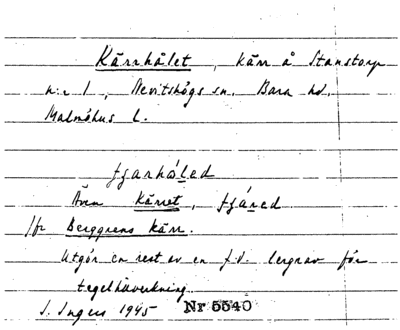 Kärrhålet, kärr å Stanstorp
n:r 1, Nevitshögs sn. Bara hd.
Malmöhus l.
tjarhǻled
Även Kärret, tjǻred
Jfr Berggrens Kärr.
Utgör en rest av en f.d. lergrav för
tegeltillverkning.
I. Ingers 1945 Nr 5540